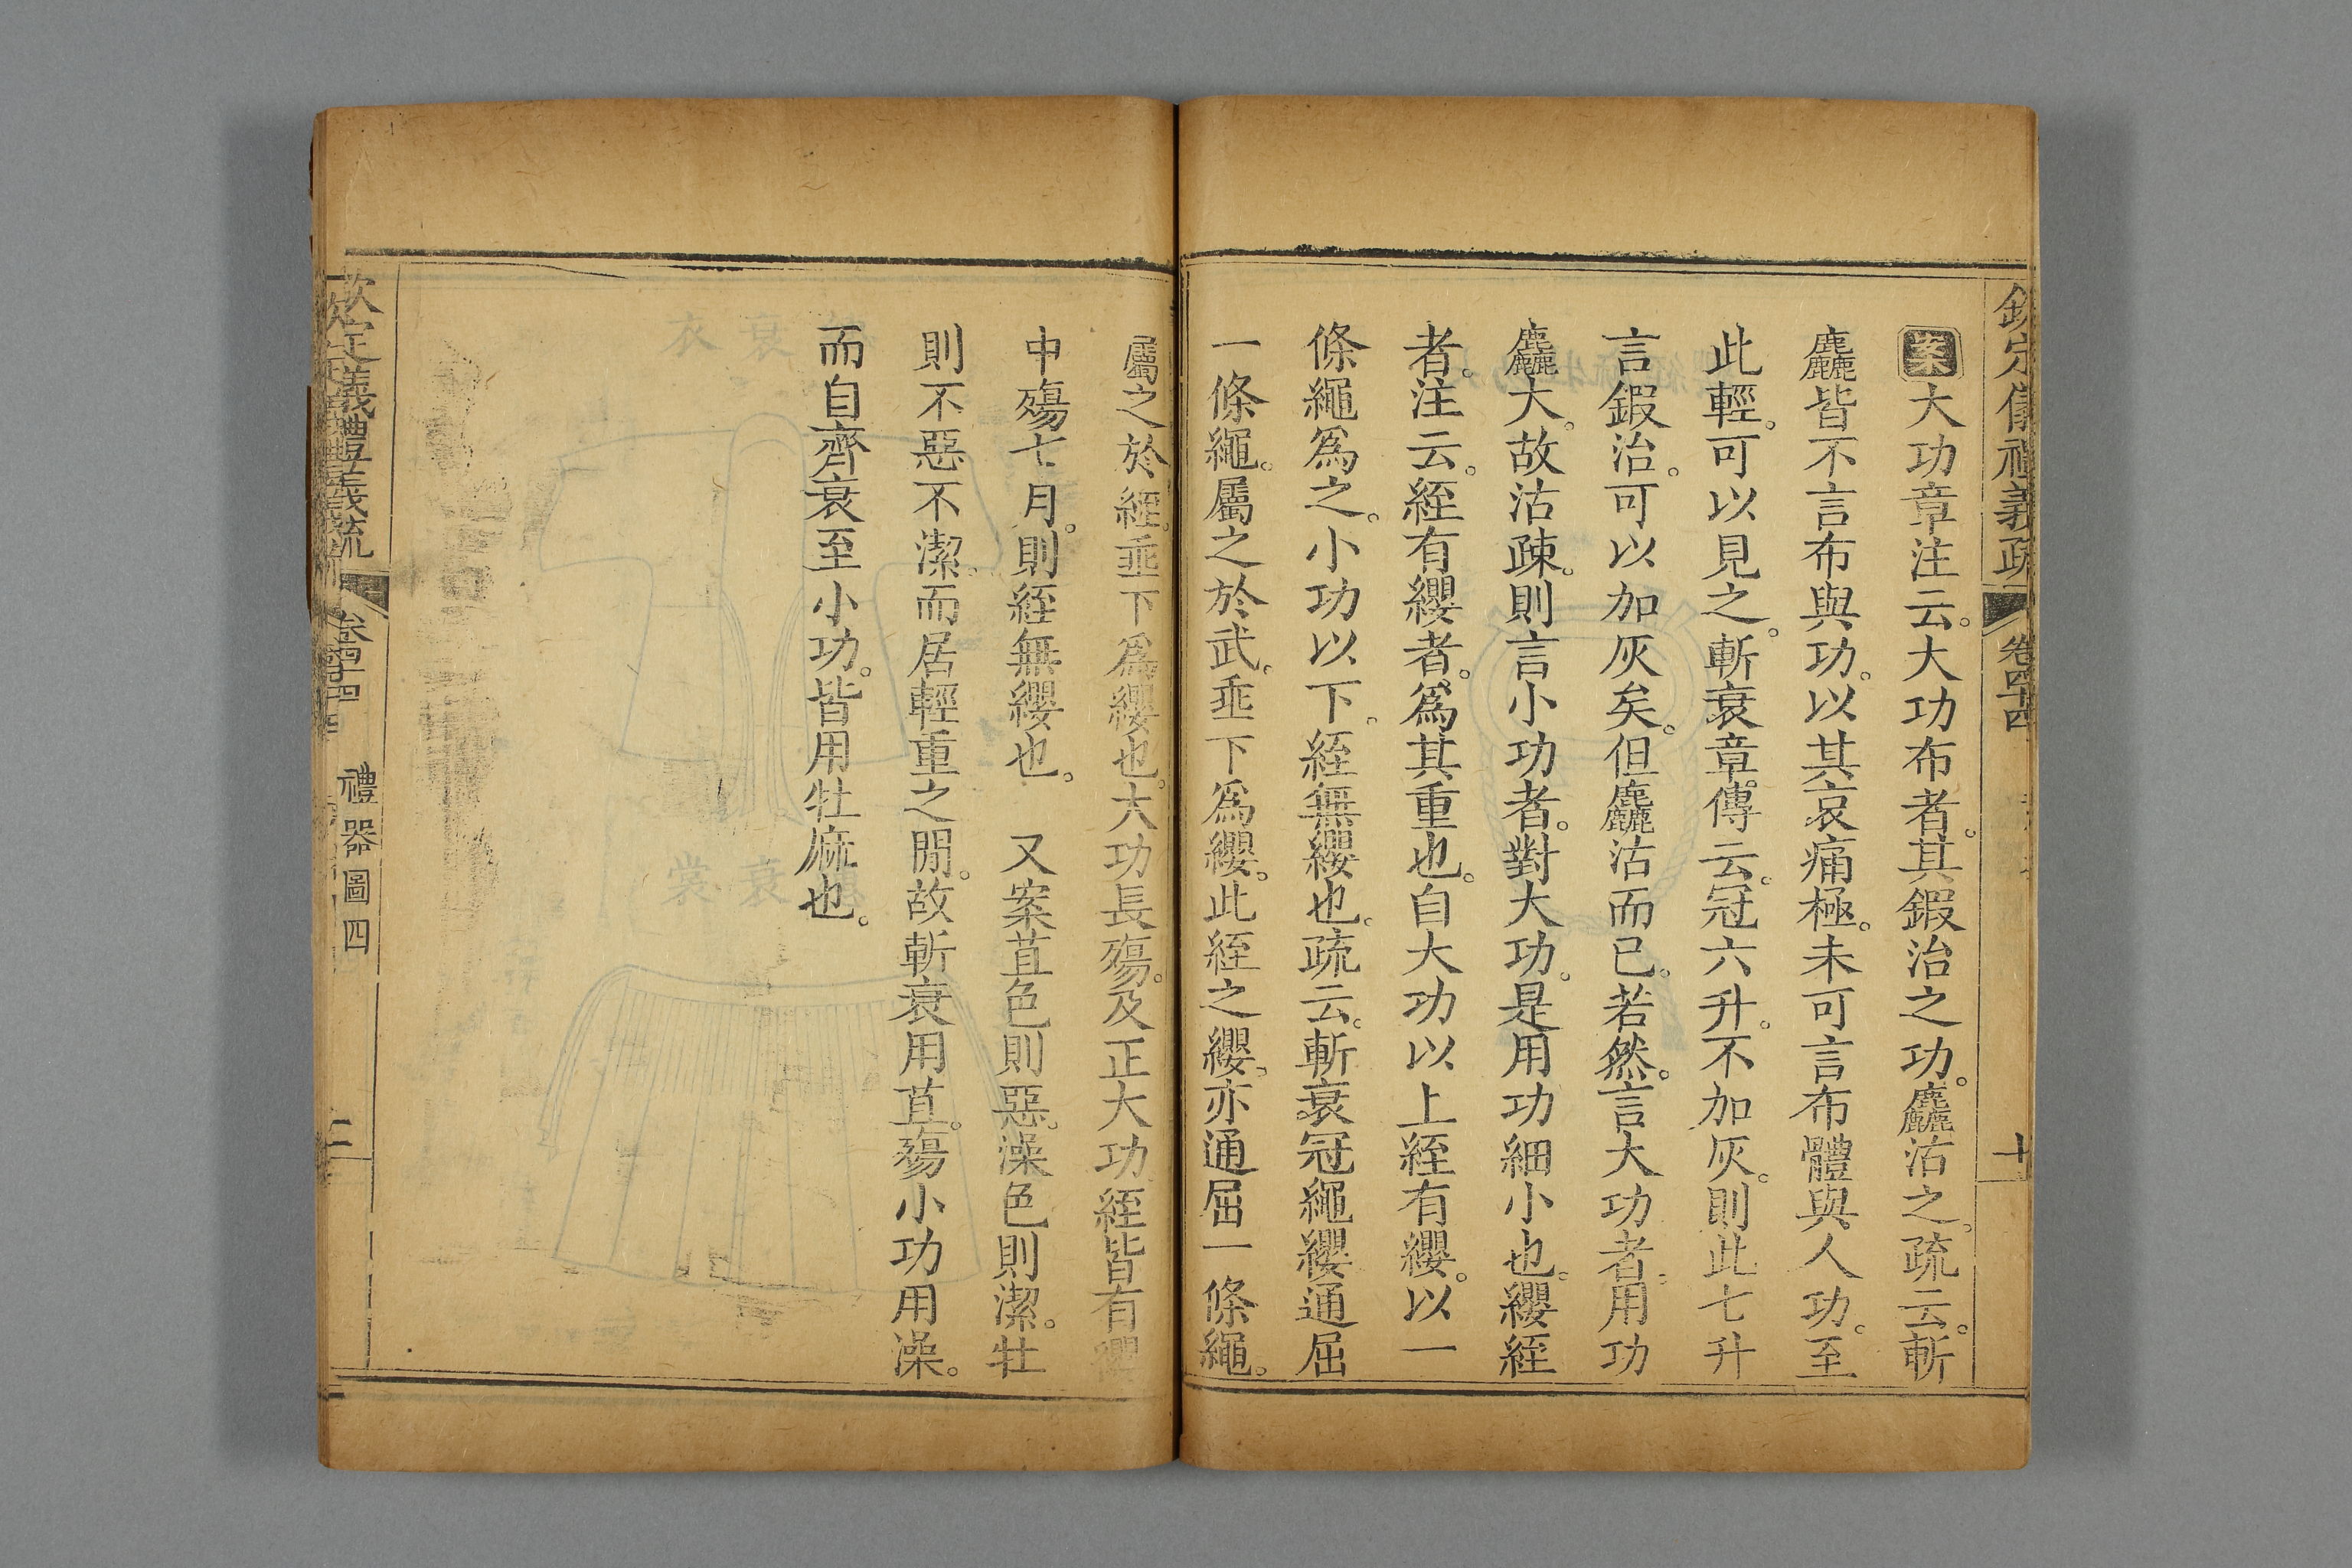 欽定儀禮義疏 卷四十四 十
案大功章注云。大功布者。其鍛治之功。麤沽之。疏云。斬
麤皆不言布與功。以其哀痛極。未可言布體與人功。至
此輕。可以見之。斬衰章。傳云。冠六升。不加灰。則此七升
言鍛治。可以加灰矣。但麤沽而已。若然。言大功者。用功
麤大。故沽疎。則言小功者。對大功。是用功細小也。纓絰
者。注云。絰有纓者。爲其重也。自大功以上絰有纓。以一
條繩爲之。小功以下。絰無纓也。疏云。斬衰冠繩纓通屈
一條繩。屬之於武。垂下爲纓。此絰之纓。亦通屈一條繩。
屬之於絰。垂下爲纓也。大功長殤。及正大功絰皆有纓
中殤七月。則絰無纓也。 又案苴色則惡。澡色則潔。牡
則不惡不潔。而居輕重之閒。故斬衰用苴。殤小功用澡。
而自齊衰至小功。皆用牡麻也。
欽定義禮義疏 卷四十四 禮器圖四